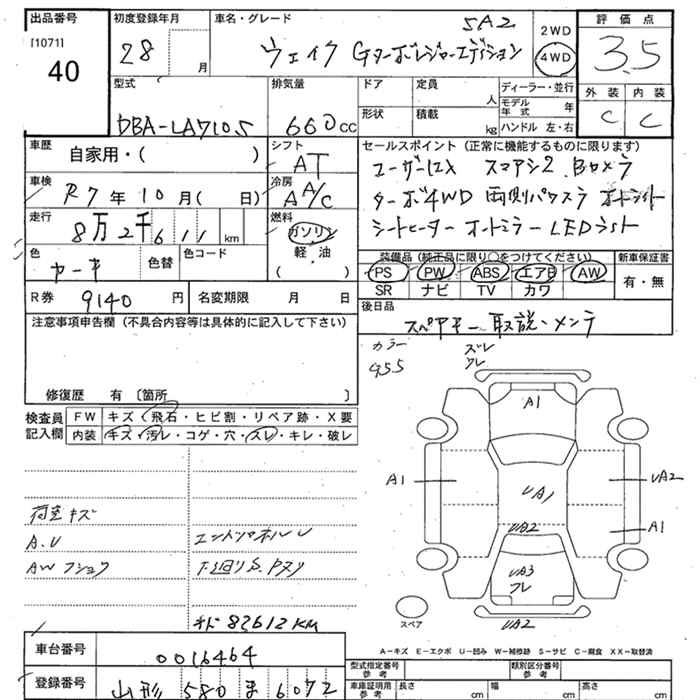 出品番号 初度登録年月 車名・グレード 評価点
[1071] 28 月 ウェイク GターボレジャーエディションSA2 2WD 4WD 3.5
40
型式 排気量 ドア 定員 人 ディーラー・並行 外装 内装
モデル年式 年 C C
DBA-LA710S 660cc 形状 積載 kg ハンドル 左・右
車歴 シフト セールスポイント(正常に機能するものに限ります)
自家用・( ) AT ユーザー スマアシ2 Bカメラ
車検 冷房 ターボ4WD 両側パワスラ
R7年10月( 日) AA/C シートヒーター オートミラー LEDライト
走行 燃料
8万2千611km ガソリン
軽・油
( )
色 色替 色コード 装備品(純正品に限り○をつけてください) 新車保証書
PS PW ABS エアB AW 有・無
SR ナビ TV カワ
R券 9140円 名変期限 月 日 後日品
スペアキー 取説・メンテ
注意事項申告欄(不具合内容等は具体的に記入して下さい)
カラー ズレ
ワレ
修復歴 有〔箇所 〕
検査員記入欄 FW キズ・飛石・ヒビ割・リペア跡・X要
内装 キズ・汚レ・コゲ・穴・スレ・キレ・破レ
A1
A1 UA1 UA2
A1
UA2
荷室キズ
A.U
AWフショク 下廻りS.
UA3
ワレ
UA2
スペア
82612KM
A-キズ E-エクボ U-凹み W-補修跡 S-サビ C-腐食 XX-取替済
車台番号 0016464
型式指定番号 参考 類別区分番号 参考
登録番号 山形 580 ま 6072
車庫証明用 参考 長さ cm 幅 cm 高さ cm